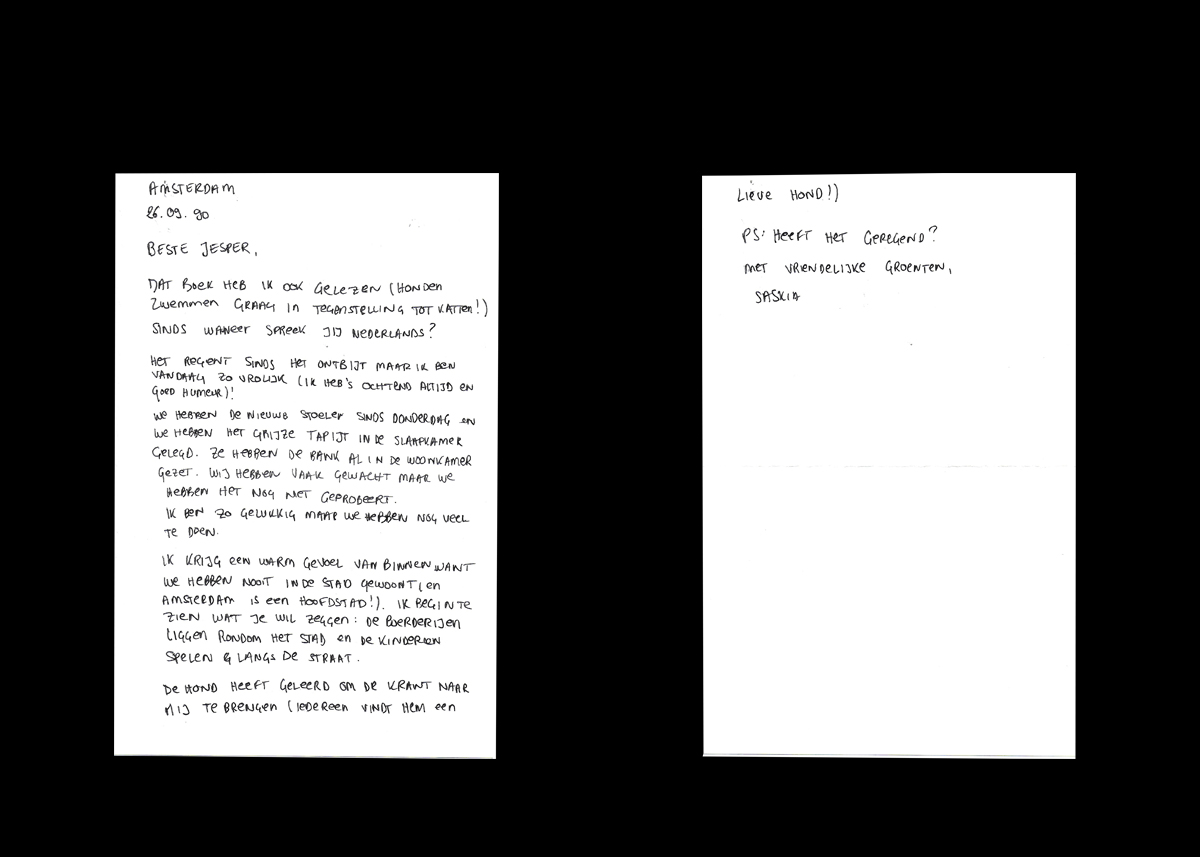 AMSTERDAM
26.09.90
BESTE JESPER,
DAT BOEK HEB IK OOK GELEZEN (HONDEN
ZWEMMEN GRAAG IN TEGENSTELLING TOT KATTEN!)
SINDS WANEER SPREEK JIJ NEDERLANDS?
HET REGENT SINDS HET ONTBIJT MAAR IK BEN
VANDAAG ZO VROLIJK (IK HEB'S OCHTEND ALTIJD EN
GOED HUMEUR)!
WE HEBBEN DE NIEUWE STOELEN SINDS DONDERDAG EN
WE HEBBEN HET GRIJZE TAPIJT IN DE SLAAPKAMER
GELEGD. ZE HEBBEN DE BANK AL IN DE WOONKAMER
GEZET. WIJ HEBBEN VAAK GEWACHT MAAR WE
HEBBEN HET NOG NIET GEPROBEERT.
IK BEN ZO GELUKKIG MAAR WE HEBBEN NOG VEEL
TE DOEN.
IK KRIJG EEN WARM GEVOEL VAN BINNEN WANT
WE HEBBEN NOOIT IN DE STAD GEWOONT (EN
AMSTERDAM IS EEN HOOFDSTAD!). IK BEGIN TE
ZIEN WAT JE WIL ZEGGEN: DE BOERDERIJEN
LIGGEN RONDOM HET STAD EN DE KINDEREN
SPELEN LANGS DE STRAAT.
DE HOND HEEFT GELEERD OM DE KRANT NAAR
MIJ TE BRENGEN (IEDEREEN VINDT HEM EEN
LIEVE HOND!)
PS: HEEFT HET GEREGEND?
MET VRIENDELIJKE GROENTEN,
SASKIA